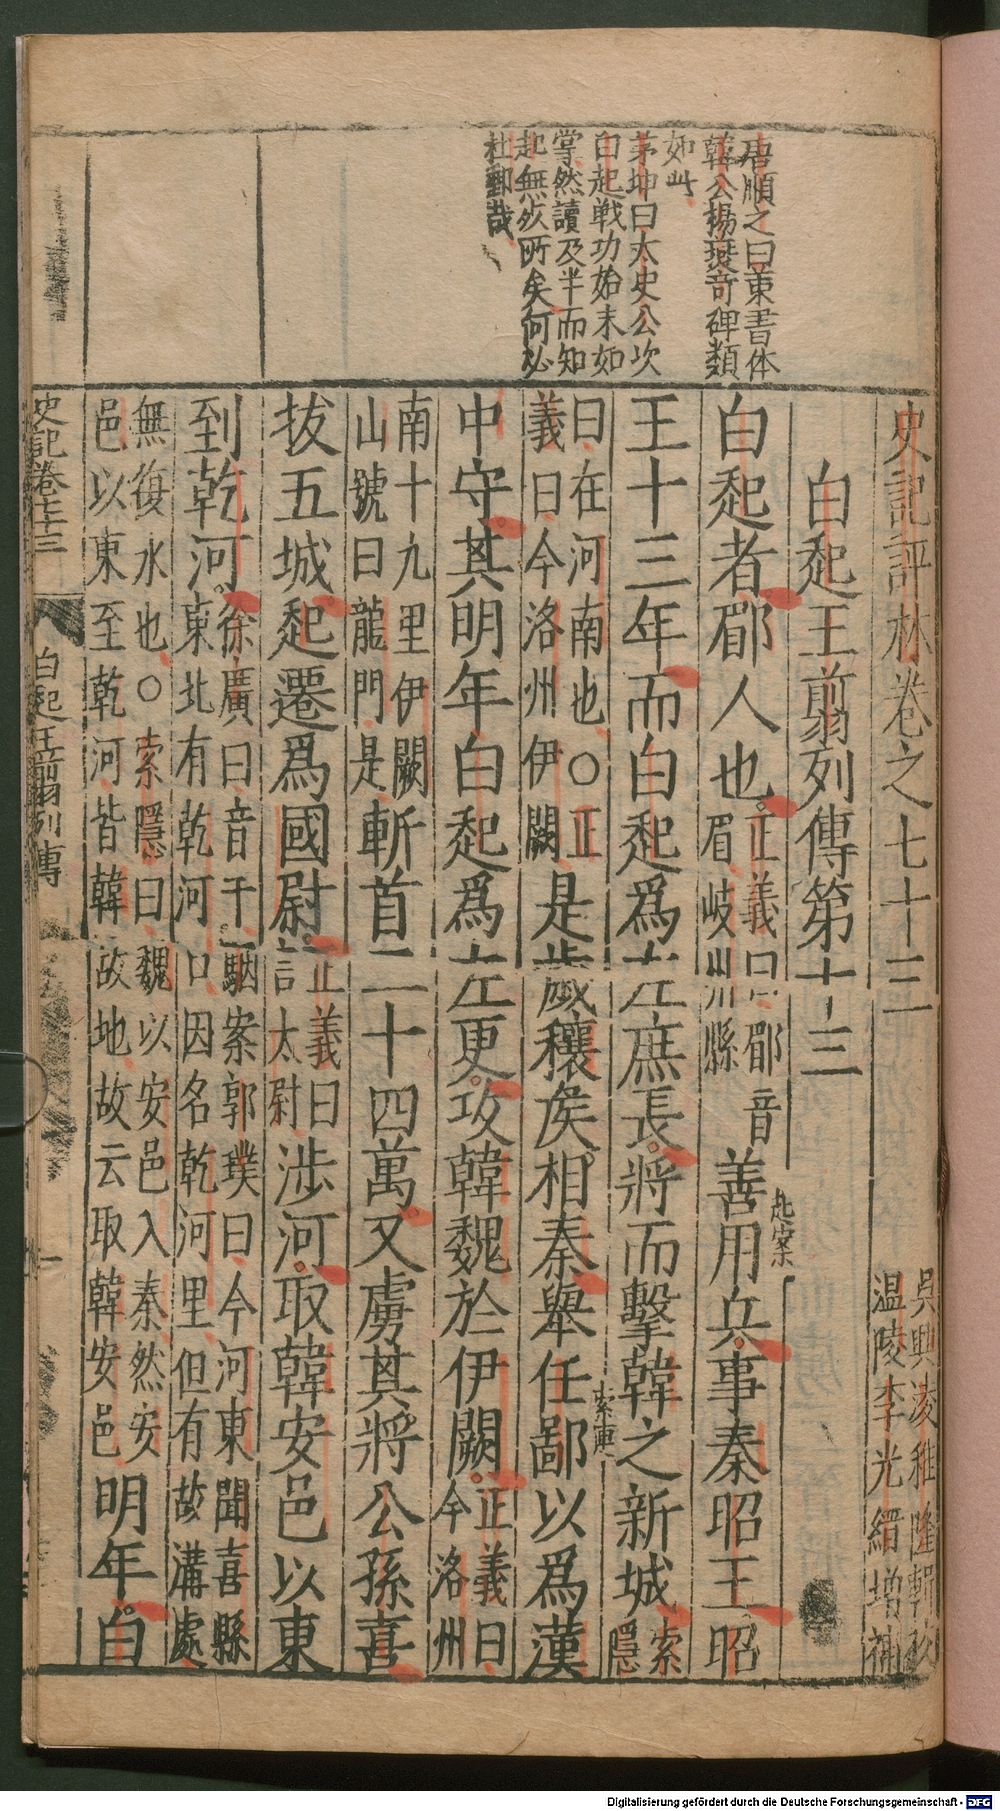 史記評林卷之七十三
吳興凌稚隆輯校
温陵李光縉增補
白起王翦列傳第十三
白起者郿人也正義曰郿音
眉岐州縣善用兵事秦昭王昭
起案
王十三年而白起爲左庶長將而擊韓之新城索
隱
曰在河南也○正
義曰今洛州伊闕是歲穰侯相秦舉任鄙以爲漢
中守其明年白起爲左更攻韓魏於伊闕正義曰
今洛州
南十九里伊闕
山號曰龍門是斬首二十四萬又虜其將公孫喜
拔五城起遷爲國尉正義曰
言太尉涉河取韓安邑以東
到乾河徐廣曰音干駰案郭璞曰今河東聞喜縣
東北有乾河口因名乾河里但有故溝處
無復水也○索隱曰魏以安邑入秦然安
邑以東至乾河皆韓故地故云取韓安邑明年白
唐順之曰重書体
韓公揚燮奇碑類
如此
茅坤曰太史公次
白起戰功始末如
掌然讀及半而知
起無死所矣何必
杜郵哉
史記卷七十三
白起王翦列傳
一
Digitalisierung gefördert durch die Deutsche Forschungsgemeinschaft - DFG